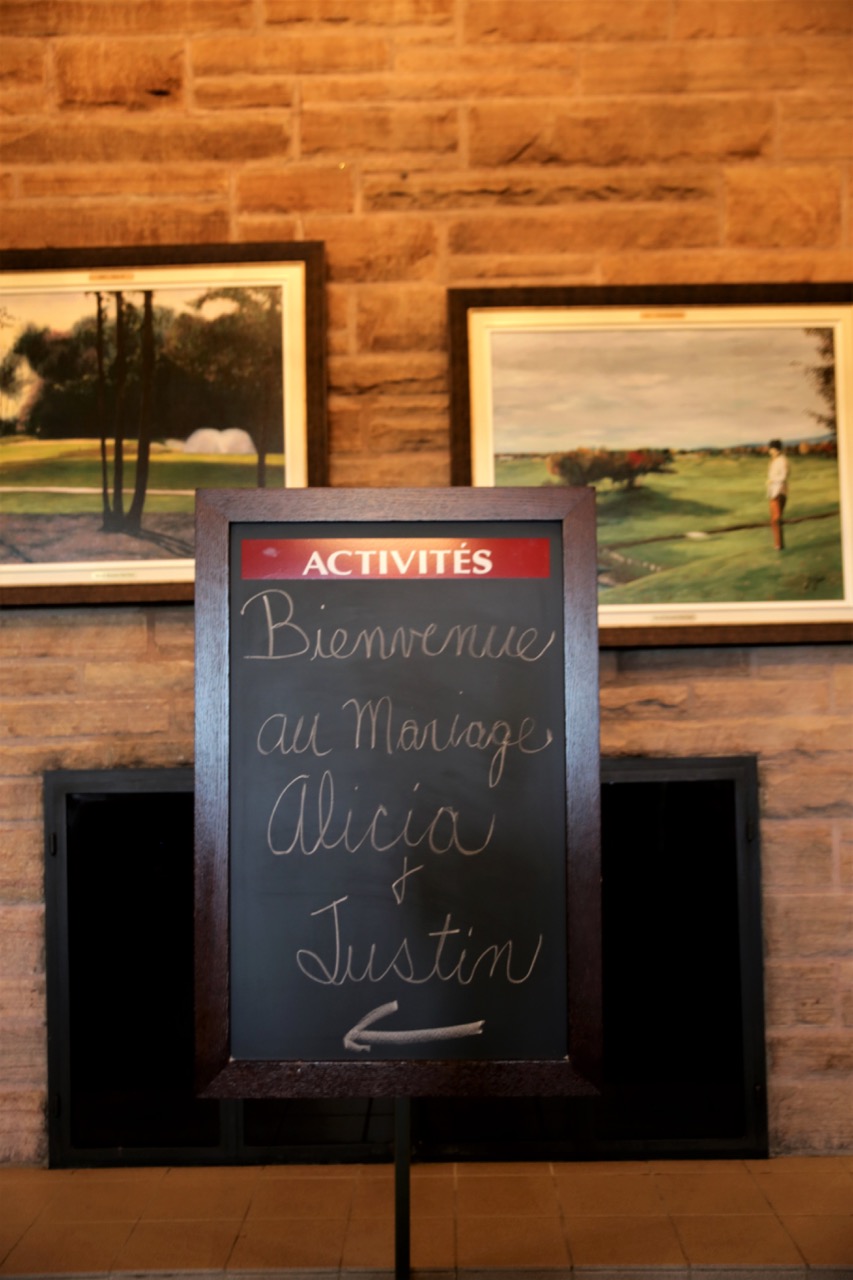 ACTIVITÉS
Bienvenue
au Mariage
Alicia
&
Justin